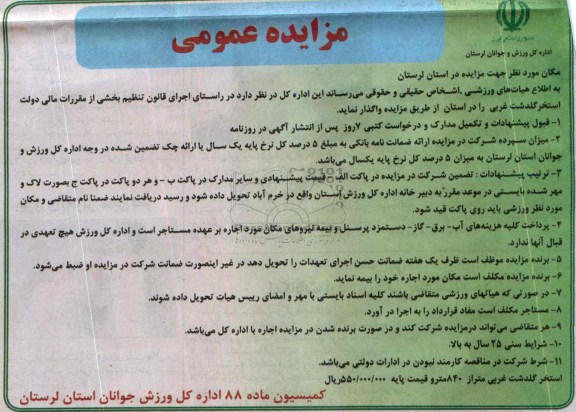 جمهوری اسلامی ایران
اداره کل ورزش و جوانان لرستان
مزایده عمومی
مکان مورد نظر جهت مزایده در استان لرستان
به اطلاع هیات‌های ورزشی ,اشخاص حقیقی و حقوقی می‌رساند این اداره کل در نظر دارد در راستای اجرای قانون تنظیم بخشی از مقررات مالی دولت
استخر گلدشت غربی را در استان از طریق مزایده واگذار نماید.
۱- قبول پیشنهادات و تکمیل مدارک و درخواست کتبی ۷روز پس از انتشار آگهی در روزنامه
۲- میزان سپرده شرکت در مزایده ارائه ضمانت نامه بانکی به مبلغ ۵ درصد کل نرخ پایه یک سال یا ارائه چک تضمین شده در وجه اداره کل ورزش و
جوانان استان لرستان به میزان ۵ درصد کل نرخ پایه یکسال می‌باشد.
۳- ترتیب پیشنهادات : تضمین شرکت در مزایده در پاکت الف - قیمت پیشنهادی و سایر مدارک در پاکت ب - و هر دو پاکت در پاکت ج بصورت لاک و
مهر شده بایستی در موعد مقرر به دبیر خانه اداره کل ورزش استان واقع در خرم آباد تحویل داده شود و رسید دریافت نمایند ضمنا نام متقاضی و مکان
مورد نظر ورزشی باید روی پاکت قید شود.
۴- پرداخت کلیه هزینه‌های آب- برق- گاز- دستمزد پرسنل و بیمه نیروهای مکان مورد اجاره بر عهده مستاجر است و اداره کل ورزش هیچ تعهدی در
قبال آنها ندارد.
۵- برنده مزایده موظف است ظرف یک هفته ضمانت حسن اجرای تعهدات را تحویل دهد در غیر اینصورت ضمانت شرکت در مزایده او ضبط می‌شود.
۶- برنده مزایده مکلف است مکان مورد اجاره خود را بیمه نماید.
۷- در صورتی که هیاتهای ورزشی متقاضی باشند کلیه اسناد بایستی با مهر و امضای رییس هیات تحویل داده شوند.
۸- مستاجر مکلف است مفاد قرارداد را به اجرا در آورد.
۹- هر متقاضی می‌تواند درمزایده شرکت کند و در صورت برنده شدن در مزایده اجاره با اداره کل می‌باشد.
۱۰- شرایط سنی ۲۵ سال به بالا.
۱۱- شرط شرکت در مناقصه کارمند نبودن در ادارات دولتی می‌باشد.
استخر گلدشت غربی متراژ ۸۴۰مترو قیمت پایه ۵۵۰/۰۰۰/۰۰۰ریال
کمیسیون ماده ۸۸ اداره کل ورزش جوانان استان لرستان